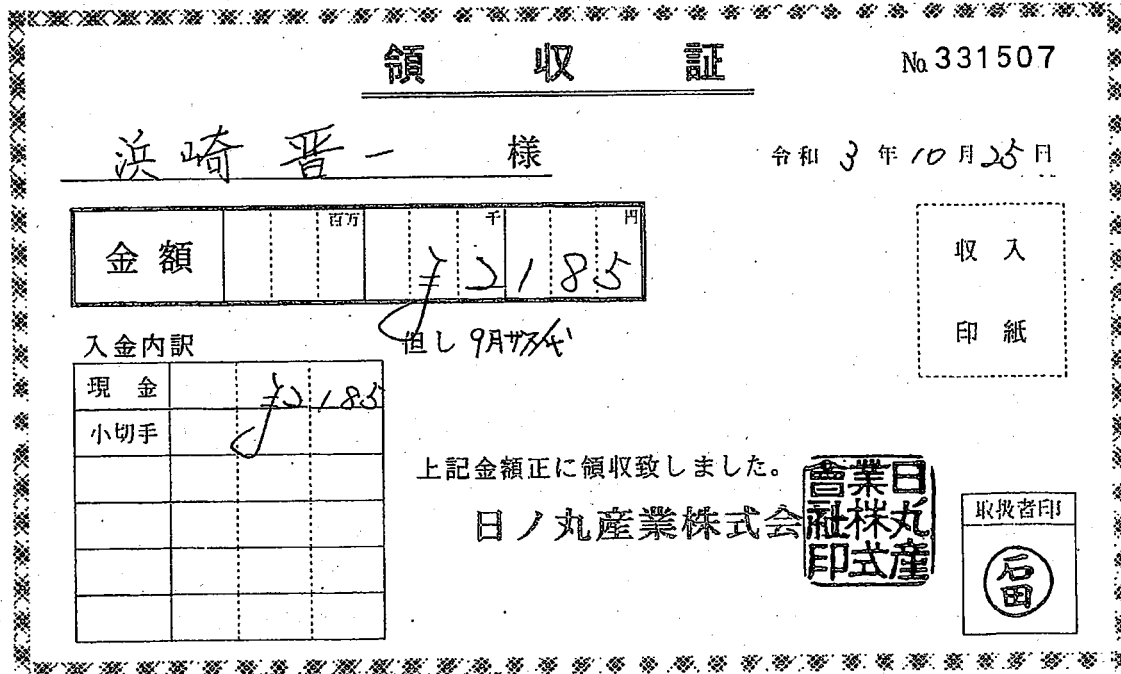 領収証
No. 331507
浜崎 晋一 様
令和 3 年 10 月 25 日
金額 百万 千 円
¥2185
但し 9月ガス代
収入
印紙
入金内訳
現金 ¥2,185
小切手
上記金額正に領収致しました。
日ノ丸産業株式会
日ノ丸産業株式會社印
取扱者印
石田